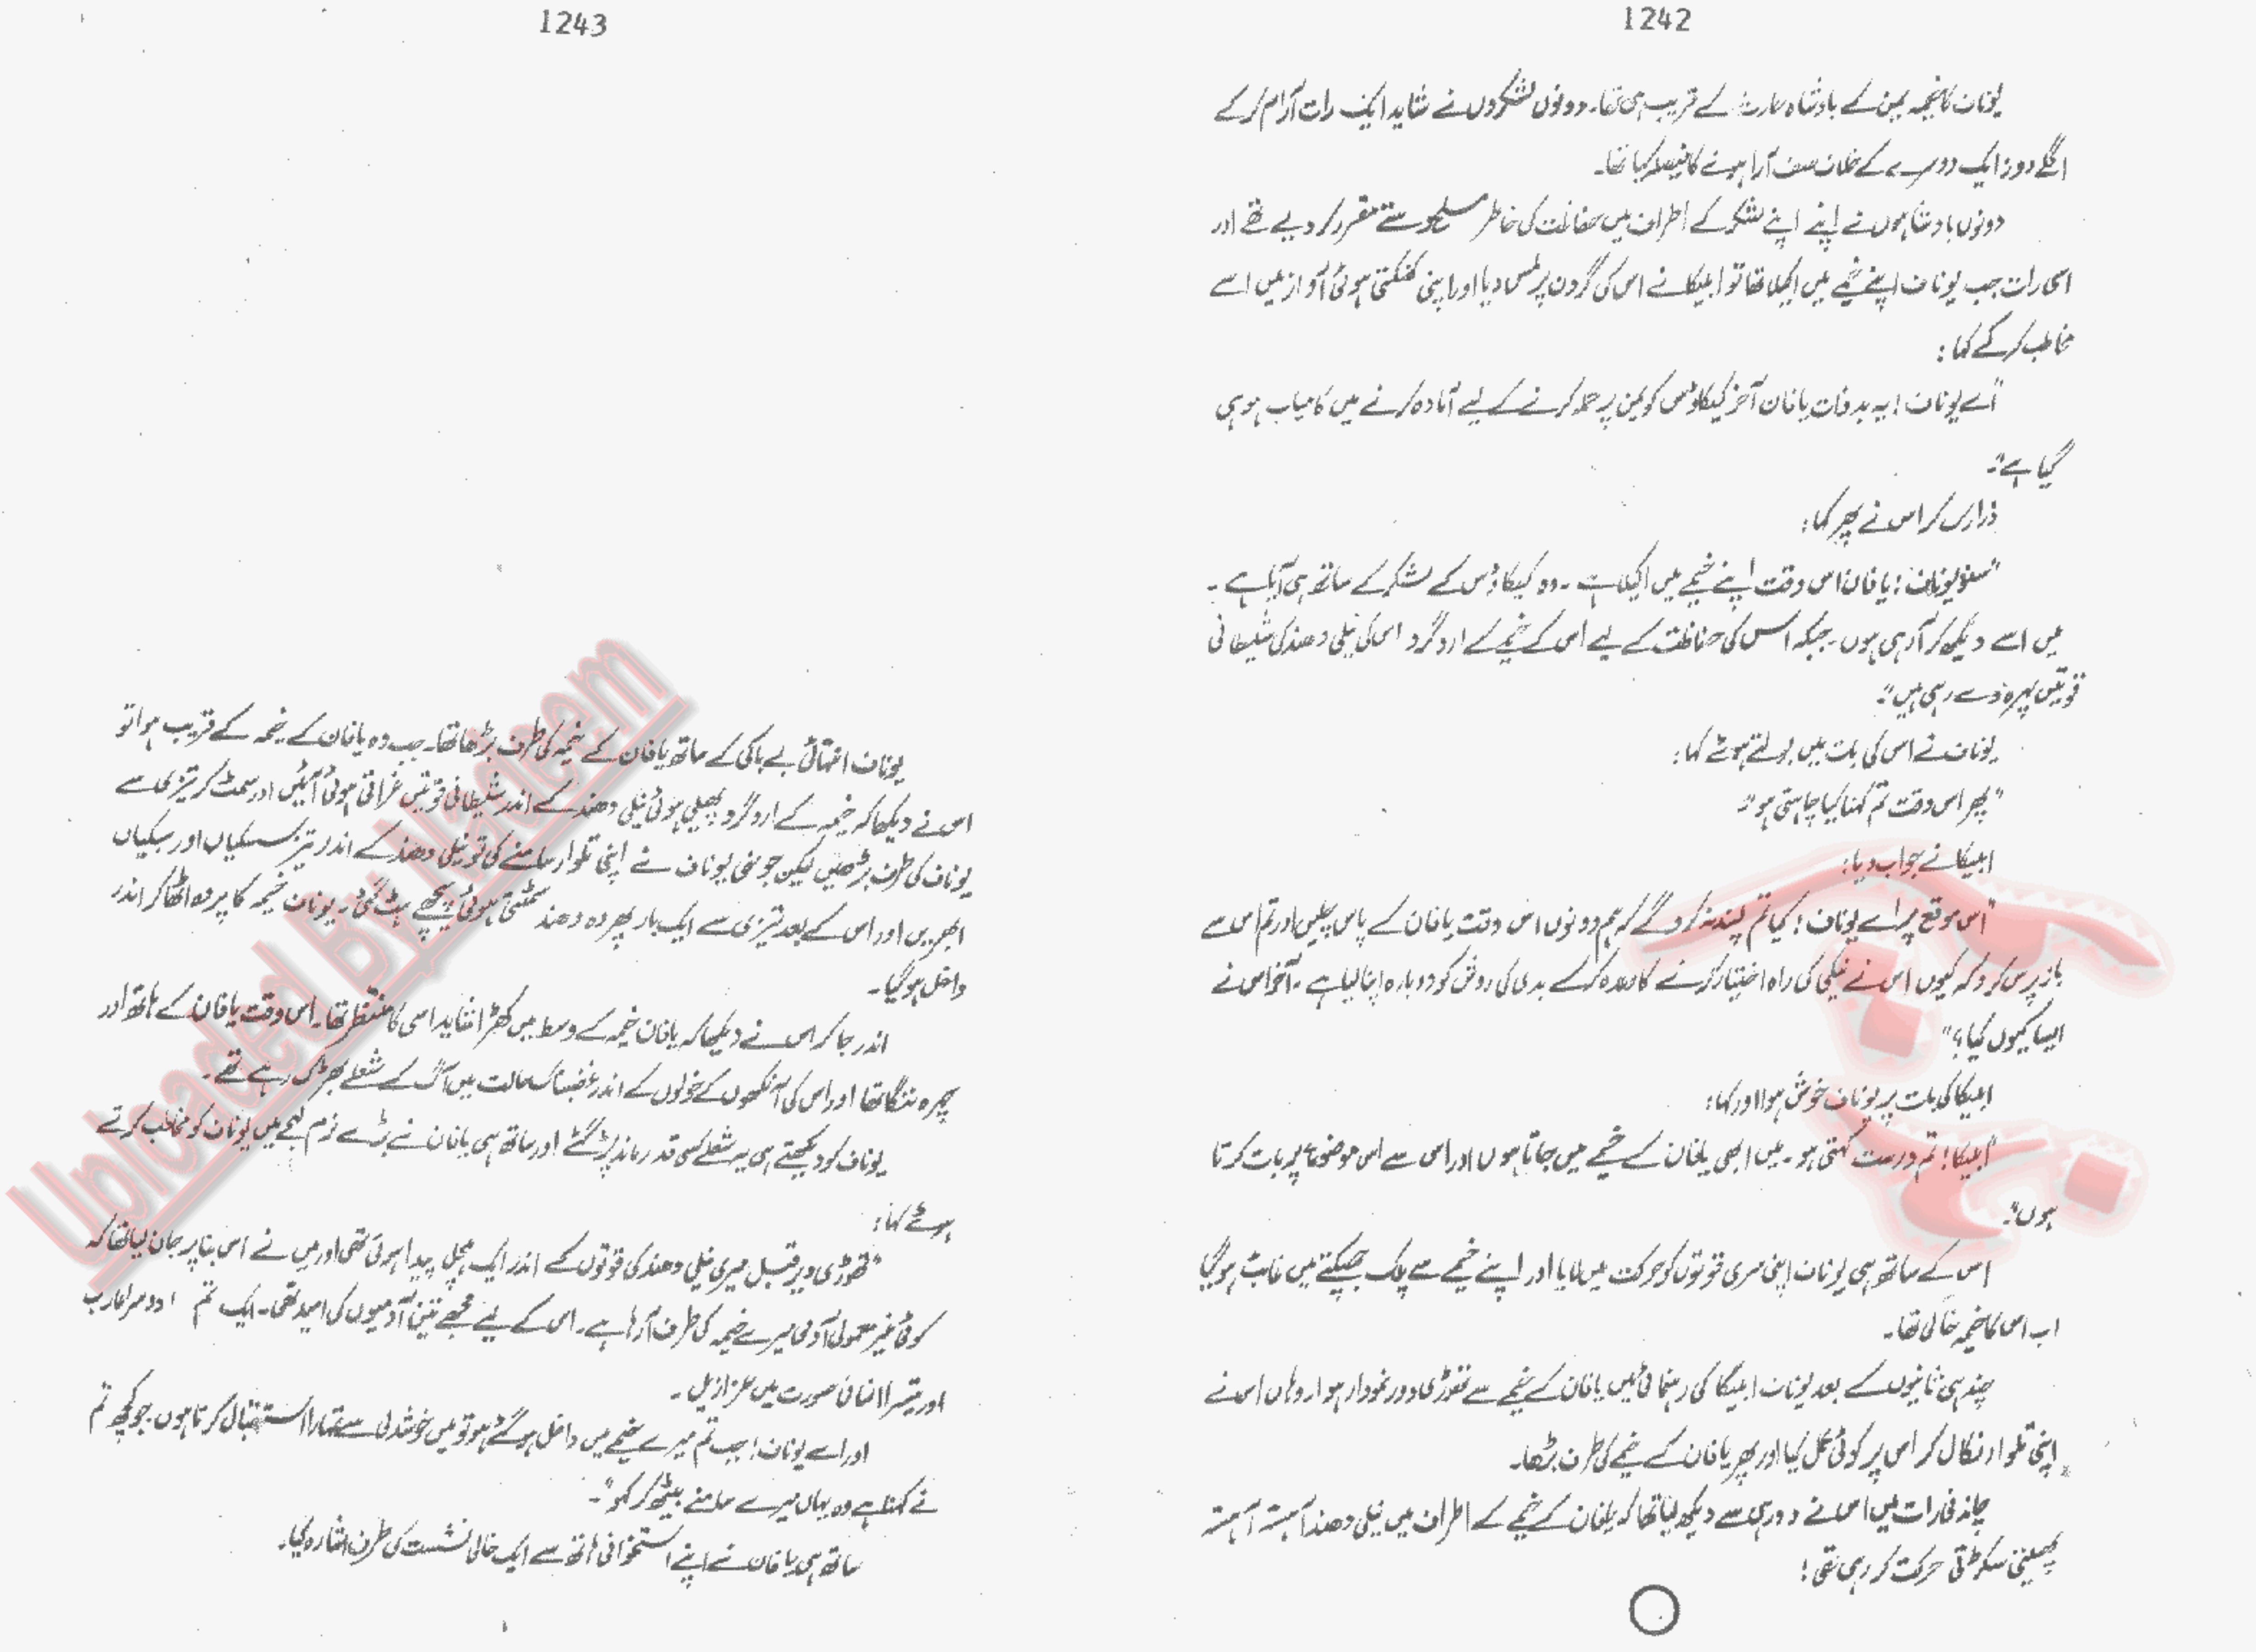 1242
یوناف کا خیمہ یمن کے بادشاہ حارث کے قریب ہی تھا۔ دونوں لشکروں نے شاید ایک رات آرام کر کے
اگلے روز ایک دوسرے کے خلاف صف آرا ہونے کا فیصلہ کیا تھا۔
دونوں بادشاہوں نے اپنے اپنے لشکر کے اطراف میں حفاظت کی خاطر مسلح دستے مقرر کر دیے تھے اور
اسی رات جب یوناف اپنے خیمے میں اکیلا تھا تو ابلیکا نے اس کی گردن پر لمس دیا اور اپنی کھنکتی ہوئی آواز میں اسے
مخاطب کر کے کہا :
"اے یوناف ! یہ بدذات یافان آخر کیکاؤس کو یمن پر حملہ کرنے کے لیے آمادہ کرنے میں کامیاب ہو ہی
گیا ہے"۔
ذرا رک کر اس نے پھر کہا :
"سنو یوناف ! یافان اس وقت اپنے خیمے میں اکیلا ہے ۔ وہ کیکاؤس کے لشکر کے ساتھ ہی آیا ہے ۔
میں اسے دیکھ کر آ رہی ہوں ۔ جبکہ اس کی حفاظت کے لیے اس کے خیمے کے ارد گرد اس کی نیلی دھند کی شیطانی
قوتیں پہرہ دے رہی ہیں"۔
یوناف نے اس کی بات میں بولتے ہوئے کہا :
"پھر اس وقت تم کہنا کیا چاہتی ہو"۔
ابلیکا نے جواب دیا :
"اس موقع پر اے یوناف ! کیا تم پسند نہ کرو گے کہ ہم دونوں اس وقت یافان کے پاس چلیں اور تم اس سے
باز پرس کرو کہ کیوں اس نے نیکی کی راہ اختیار کرنے کا وعدہ کر کے بدی کی روش کو دوبارہ اپنا لیا ہے ۔ آخر اس نے
ایسا کیوں کیا ؟"
ابلیکا کی بات پر یوناف خوش ہوا اور کہا :
"ابلیکا ! تم درست کہتی ہو ۔ میں ابھی یافان کے خیمے میں جاتا ہوں اور اس سے اس موضوع پر بات کرتا
ہوں"۔
اس کے ساتھ ہی یوناف اپنی سری قوتوں کو حرکت میں لایا اور اپنے خیمے سے پلک جھپکتے میں غائب ہو گیا
اب اس کا خیمہ خالی تھا۔
چند ہی ثانیوں کے بعد یوناف ابلیکا کی رہنمائی میں یافان کے خیمے سے تھوڑی دور نمودار ہوا ۔ وہاں اس نے
اپنی تلوار نکال کر اس پر کوئی عمل کیا اور پھر یافان کے خیمے کی طرف بڑھا۔
چاندنی رات میں اس نے دور ہی سے دیکھ لیا تھا کہ یافان کے خیمے کے اطراف میں نیلی دھند آہستہ آہستہ
پھیلتی سکڑتی حرکت کر رہی تھی !
1243
یوناف انتہائی بے باکی کے ساتھ یافان کے خیمہ کی طرف بڑھا تھا۔ جب وہ یافان کے خیمہ کے قریب ہوا تو
اس نے دیکھا کہ خیمہ کے ارد گرد پھیلی ہوئی نیلی دھند کے اندر شیطانی قوتیں غراتی ہوئی آئیں اور سمٹ کر تیزی سے
یوناف کی طرف بڑھیں لیکن جونہی یوناف نے اپنی تلوار سامنے کی تو نیلی دھند کے اندر تیز سسکیاں اور سبکیاں
ابھریں اور اس کے بعد تیزی سے ایک بار پھر وہ دھند سمٹتی ہوئی پیچھے ہٹ گئی ۔ یوناف خیمہ کا پردہ اٹھا کر اندر
داخل ہو گیا۔
اندر جا کر اس نے دیکھا کہ یافان خیمہ کے وسط میں کھڑا شاید اسی کا منتظر تھا۔ اس وقت یافان کے ہاتھ اور
چہرہ ننگا تھا اور اس کی آنکھوں کے خولوں کے اندر غضبناک حالت میں آگ کے شعلے بھڑک رہے تھے۔
یوناف کو دیکھتے ہی یہ شعلے کسی قدر ماند پڑ گئے اور ساتھ ہی یافان نے بڑے نرم لہجے میں یوناف کو مخاطب کرتے
ہوئے کہا :
"تھوڑی دیر قبل میری نیلی دھند کی قوتوں کے اندر ایک ہلچل پیدا ہوئی تھی اور میں نے اس بنا پر جان لیا تھا کہ
کوئی غیر معمولی آدمی میرے خیمہ کی طرف آ رہا ہے ۔ اس کے لیے مجھے تین آدمیوں کی امید تھی ۔ ایک تم ، دوسرا عارب
اور تیسرا انسانی صورت میں عزازیل ۔
اور اے یوناف ! جب تم میرے خیمے میں داخل ہو گئے ہو تو میں خوشدلی سے تمہارا استقبال کرتا ہوں جو کچھ تم
نے کہنا ہے وہ یہاں میرے سامنے بیٹھ کر کہو"۔
ساتھ ہی یافان نے اپنے استخوانی ہاتھ سے ایک خالی نشست کی طرف اشارہ کیا۔
Uploaded By Nadeem